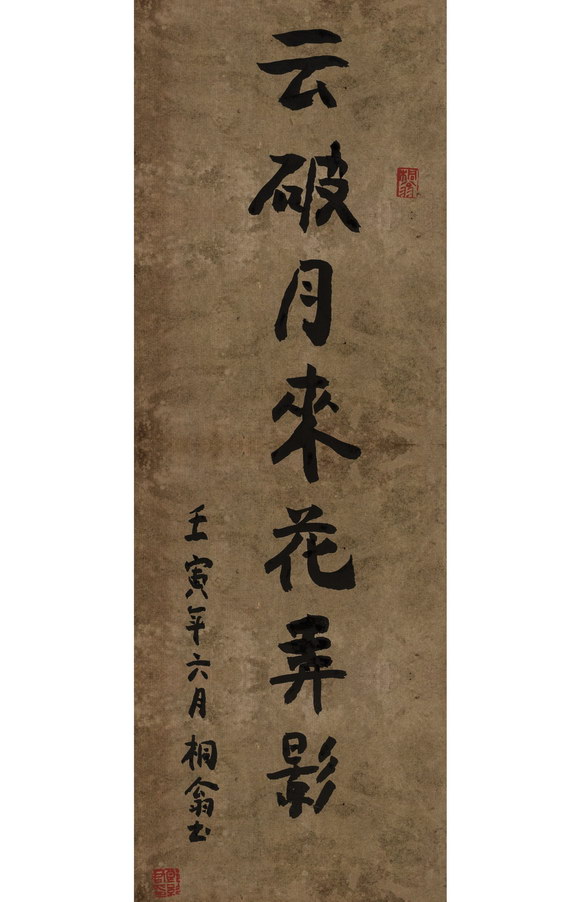 云破月來花弄影
壬寅年六月桐翁书
桐翁